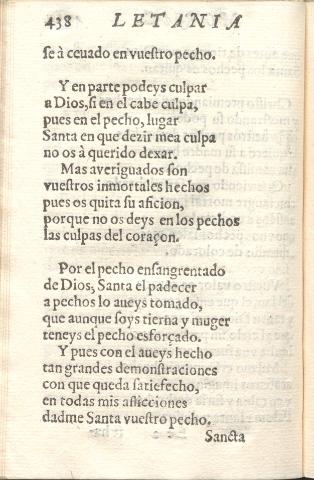 438 LETANIA
se à ceuado en vuestro pecho.
Y en parte podeys culpar
a Dios, si en el cabe culpa,
pues en el pecho, lugar
Santa en que dezir mea culpa
no os à querido dexar.
Mas averiguados son
vuestros inmortales hechos
pues os quita su aficion,
porque no os deys en los pechos
las culpas del coraçon.
Por el pecho ensangrentado
de Dios, Santa el padecer
a pechos lo aueys tomado,
que aunque soys tierna y muger
teneys el pecho esforçado.
Y pues con el aueys hecho
tan grandes demonstraciones
con que queda satisfecho,
en todas mis aflicciones
dadme Santa vuestro pecho.
Sancta